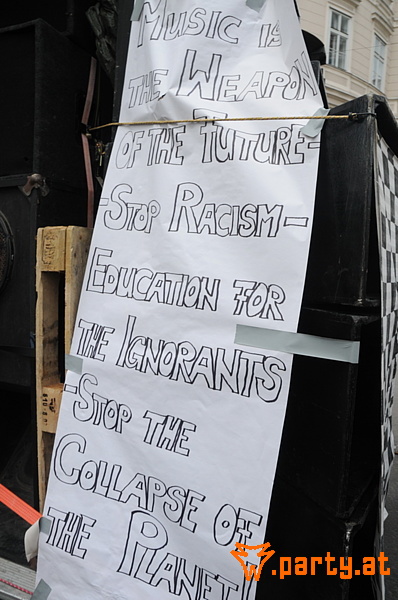 Music is
the Weapon
of the Future-
-Stop Racism-
Education for
the Ignorants
-Stop the
Collapse of
the Planet!
.party.at